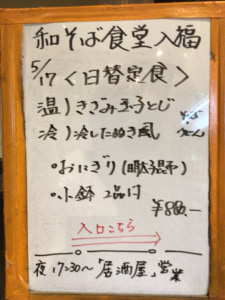 和そば食堂入福
5/17 〈日替定食〉
温)きざみ玉子とじ
冷)冷したぬき風
そば
うどん
・おにぎり
・小鉢 2品付
¥880-
入口こちら
夜 17:30〜「居酒屋」営業